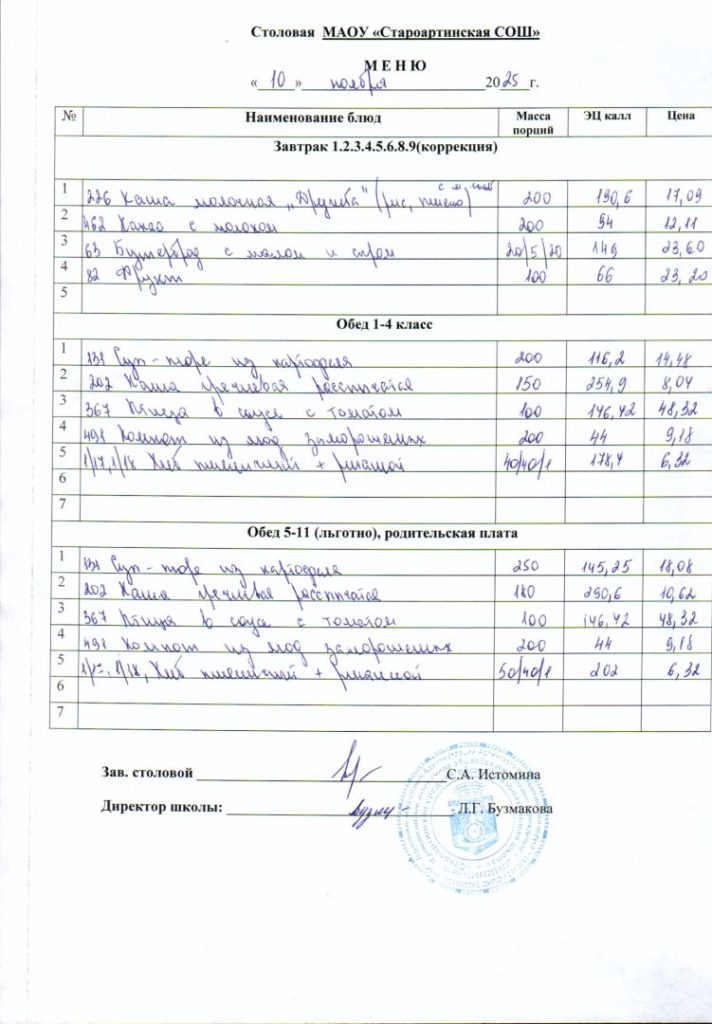 Столовая МАОУ «Староартинская СОШ»
М Е Н Ю
« 10 » ноября 2025 г.
№ Наименование блюд Масса порций ЭЦ калл Цена
Завтрак 1.2.3.4.5.6.8.9(коррекция)
1 226 Каша молочная „Дружба" (рис, пшено) с м 200 190,6 17,09
2 462 Какао с молоком 200 94 12,11
3 63 Бутерброд с маслом и сыром 20/5/20 149 23,60
4 82 Фрукт 100 66 23,20
5
Обед 1-4 класс
1 131 Суп-пюре из картофеля 200 116,2 14,48
2 202 Каша гречневая рассыпчатая 150 254,9 8,04
3 367 Птица в соусе с томатом 100 146,42 48,32
4 491 Компот из ягод замороженых 200 44 9,18
5 1/17,1/18 Хлеб пшеничный + ржаной 40/40/1 178,4 6,32
6
7
Обед 5-11 (льготно), родительская плата
1 131 Суп-пюре из картофеля 250 145,25 18,08
2 202 Каша гречневая рассыпчатая 180 290,6 10,62
3 367 Птица в соусе с томатом 100 146,42 48,32
4 491 Компот из ягод замороженых 200 44 9,18
5 1/18, Хлеб пшеничный + ржаной 50/40/1 202 6,32
6
7
Зав. столовой С.А. Истомина
Директор школы: Л.Г. Бузмакова